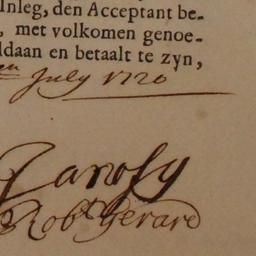 Inleg, den Acceptant be-
, met volkomen genoe-
ldaan en betaalt te zyn,
en July 1720
Robt Gerard